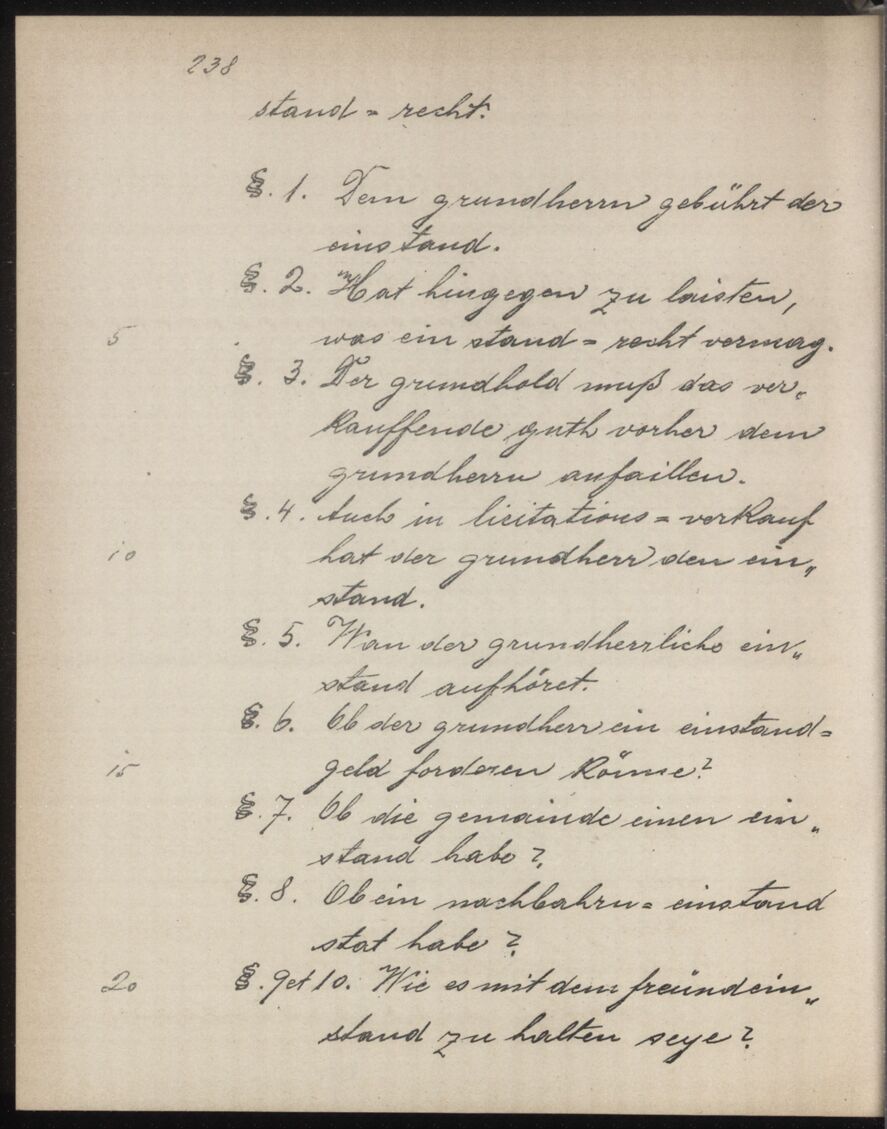 238
stand = recht.
§. 1. Dem grundherrn gebührt der
einstand.
§. 2. Hat hingegen zu laisten,
5 was ein stand = recht vermag.
§. 3. Der grundhold muß das ver„
kauffende guth vorher dem
grundherrn anfaillen.
§. 4. Auch in licitations = verkauf
10 hat der grundherr den ein„
stand.
§. 5. Wan der grundherrliche ein„
stand aufhöret.
§. 6. Ob der grundherr ein einstand=
15 geld forderen könne?
§. 7. Ob die gemainde einen ein„
stand habe?
§. 8. Ob ein nachbahrn= einstand
stat habe?
20 §. 9 et 10. Wie es mit dem freündein„
stand zu halten seye?